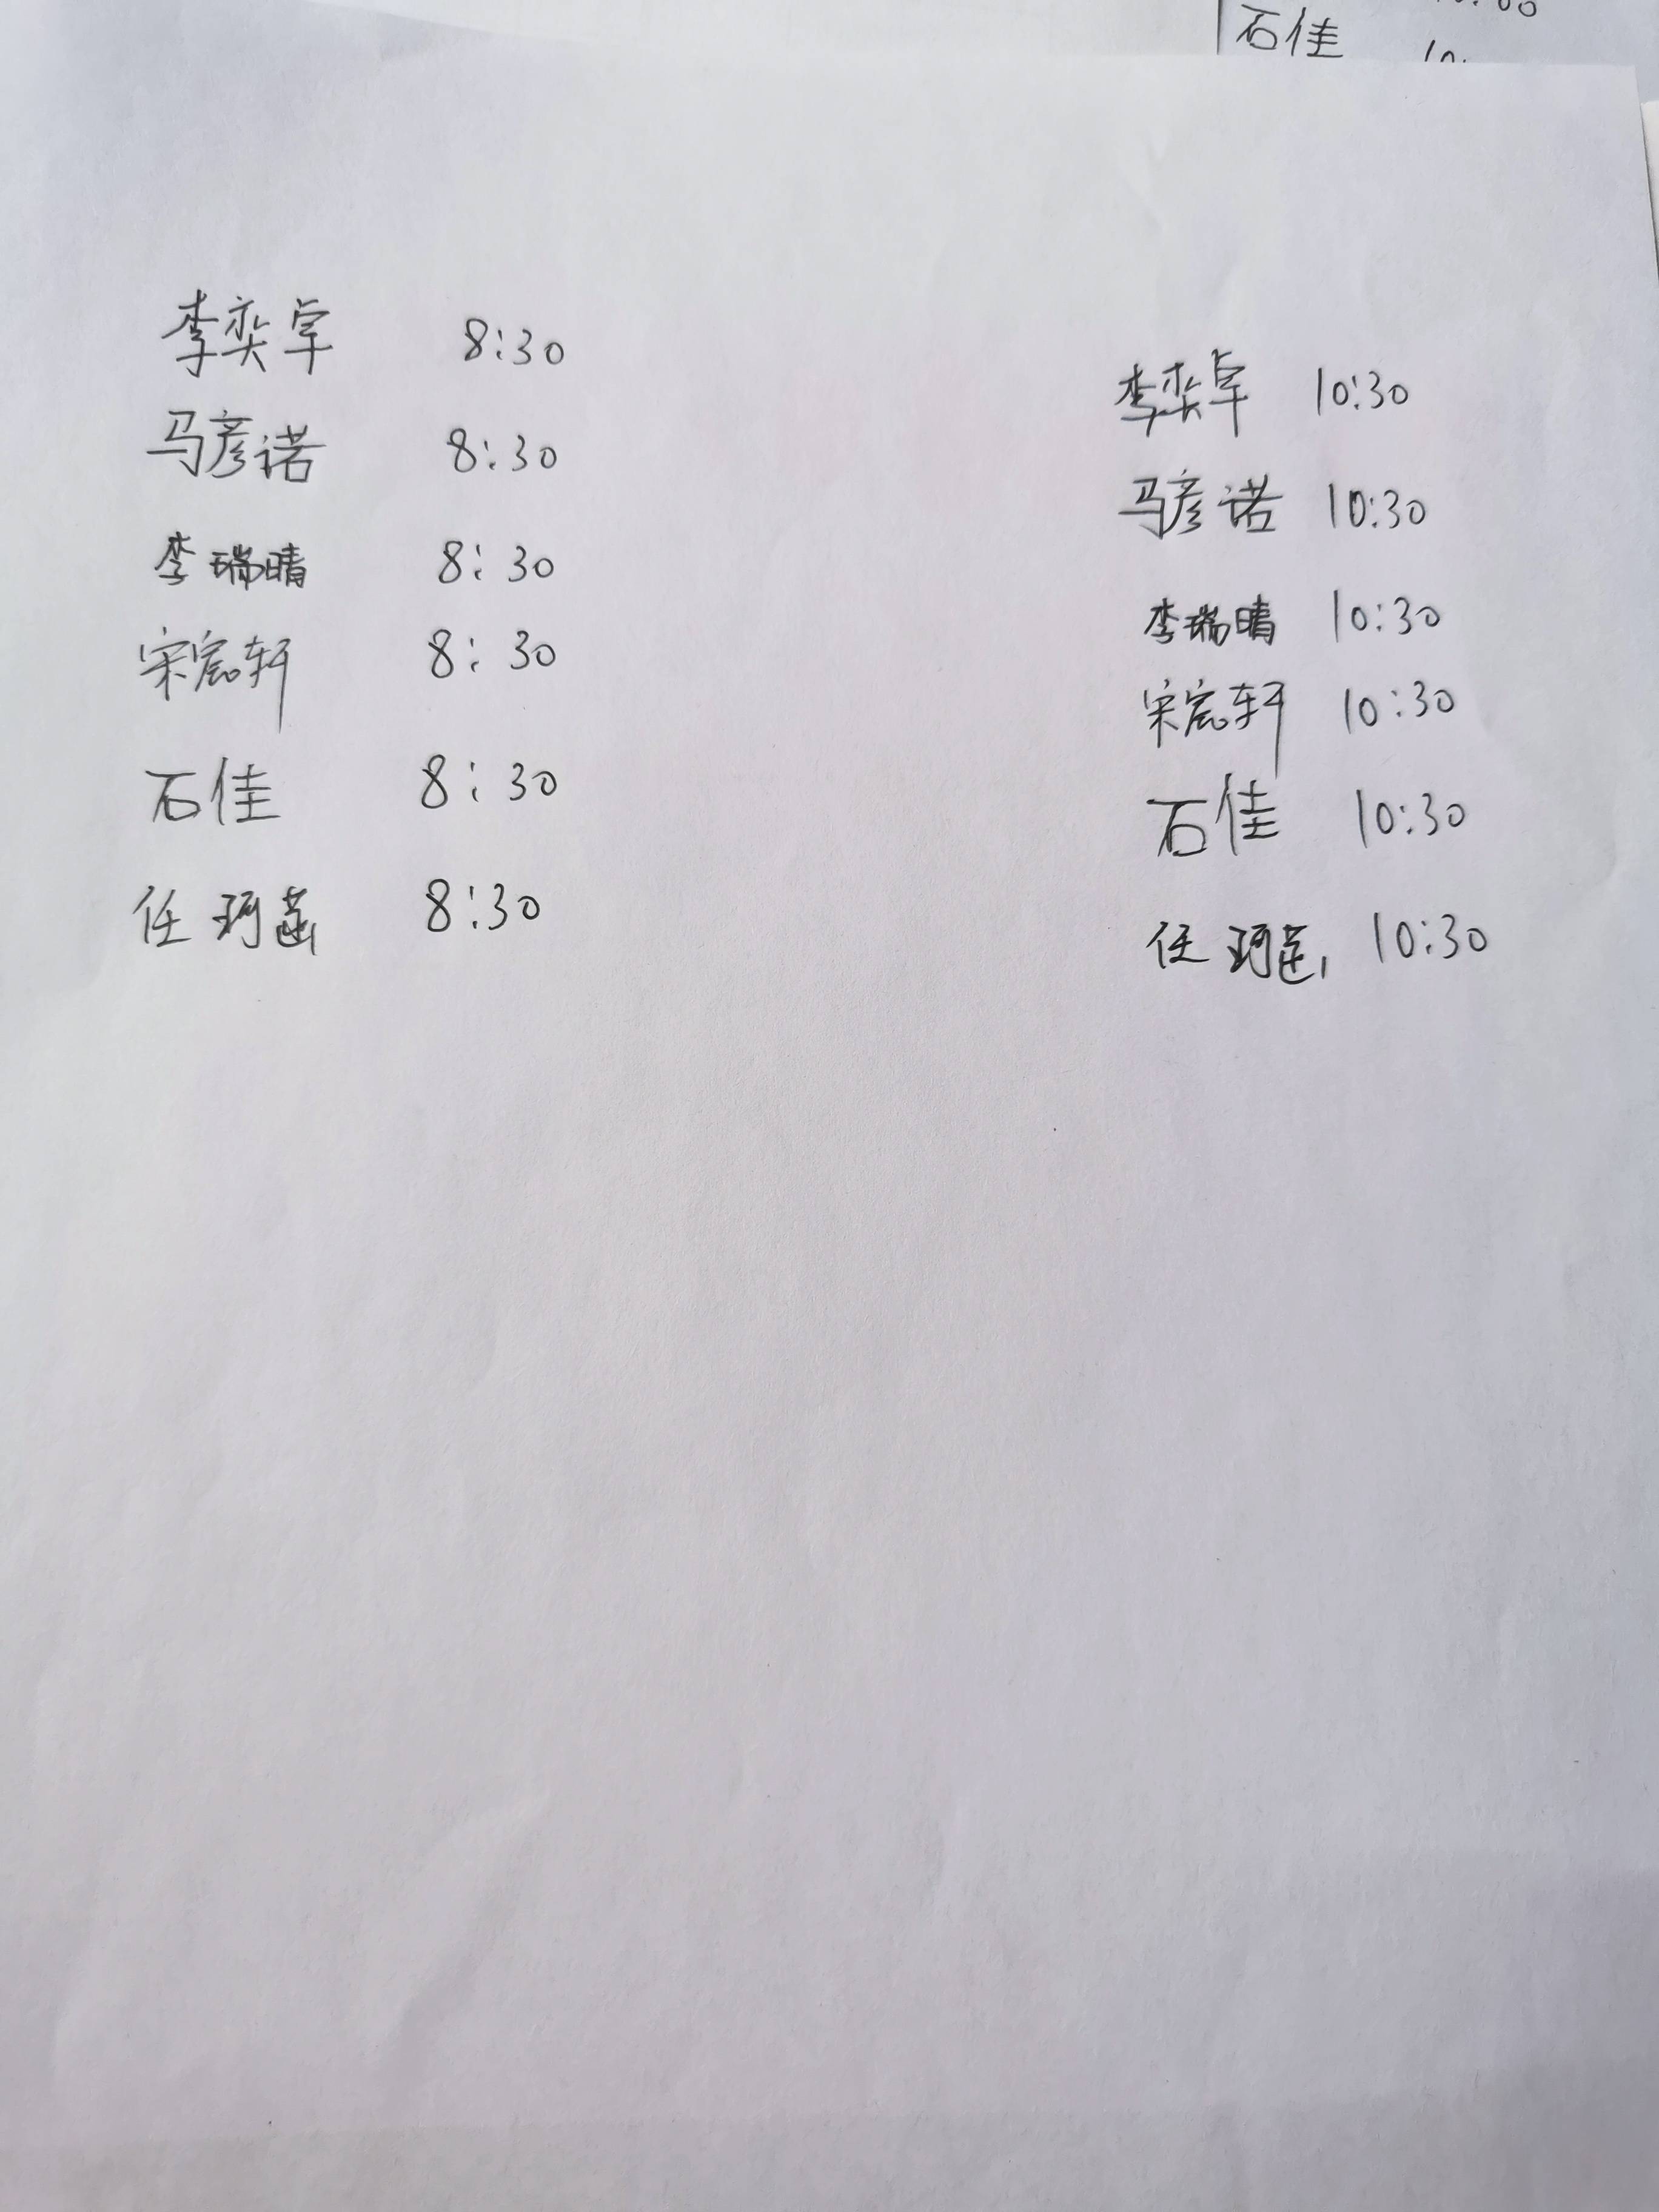 石佳
李奕卓 8:30
马彦诺 8:30
李瑞晴 8:30
宋宸轩 8:30
石佳 8:30
任珂 8:30
李奕卓 10:30
马彦诺 10:30
李瑞晴 10:30
宋宸轩 10:30
石佳 10:30
任珂 10:30